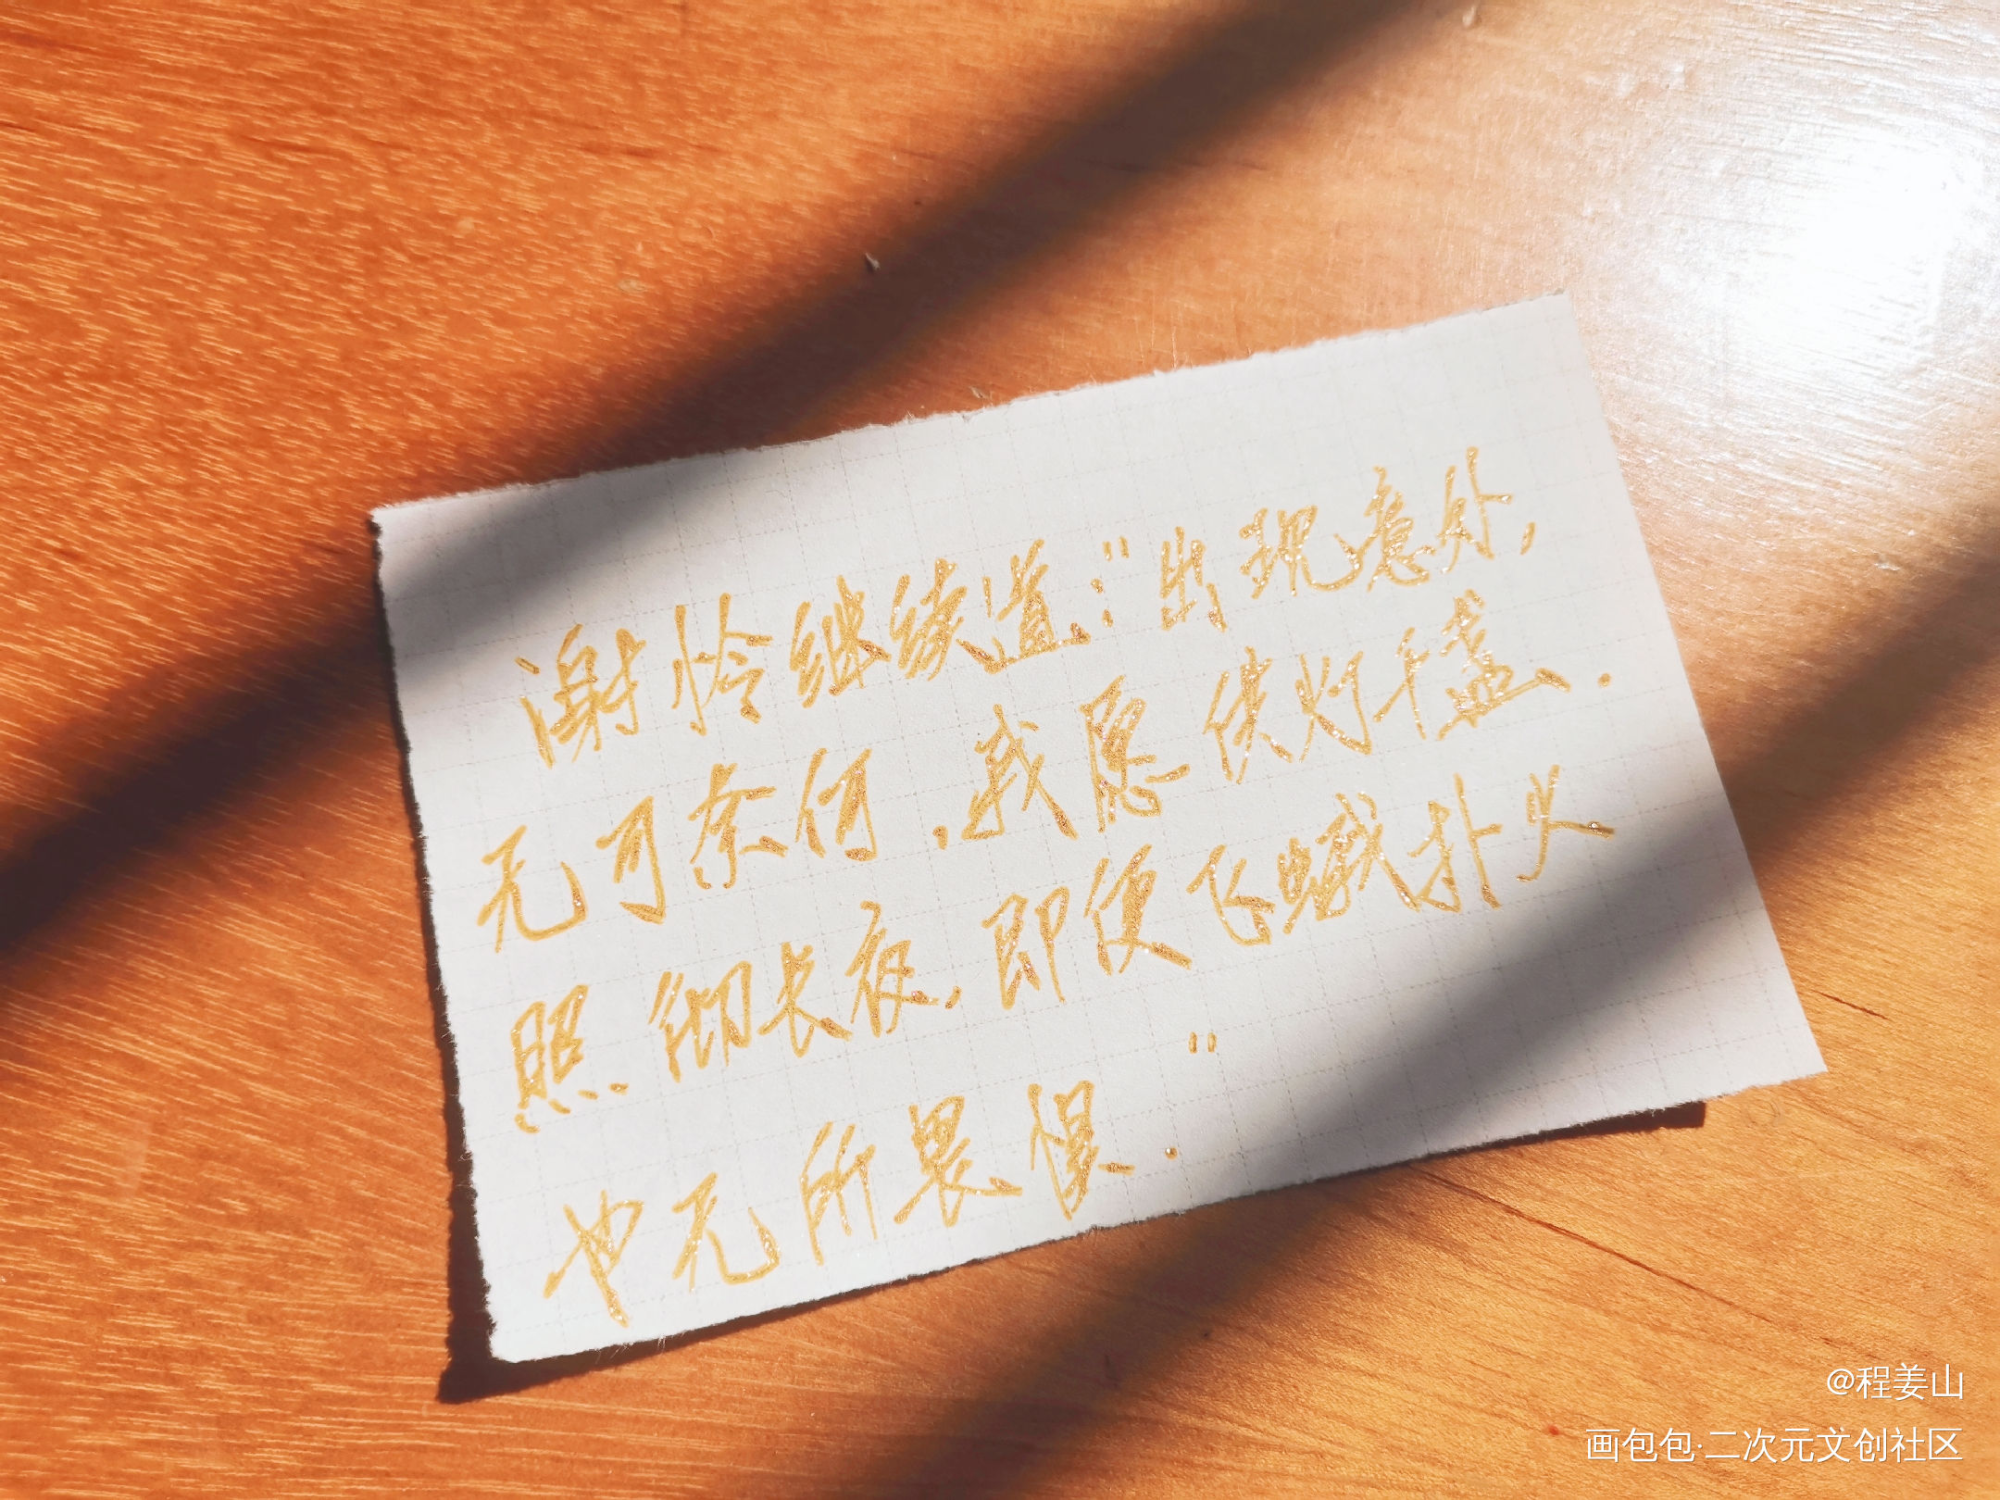 谢怜继续道:"出现意外,
无可奈何,我愿供灯千盏.
照彻长夜,即便飞蛾扑火
也无所畏惧."
@程姜山
画包包·二次元文创社区